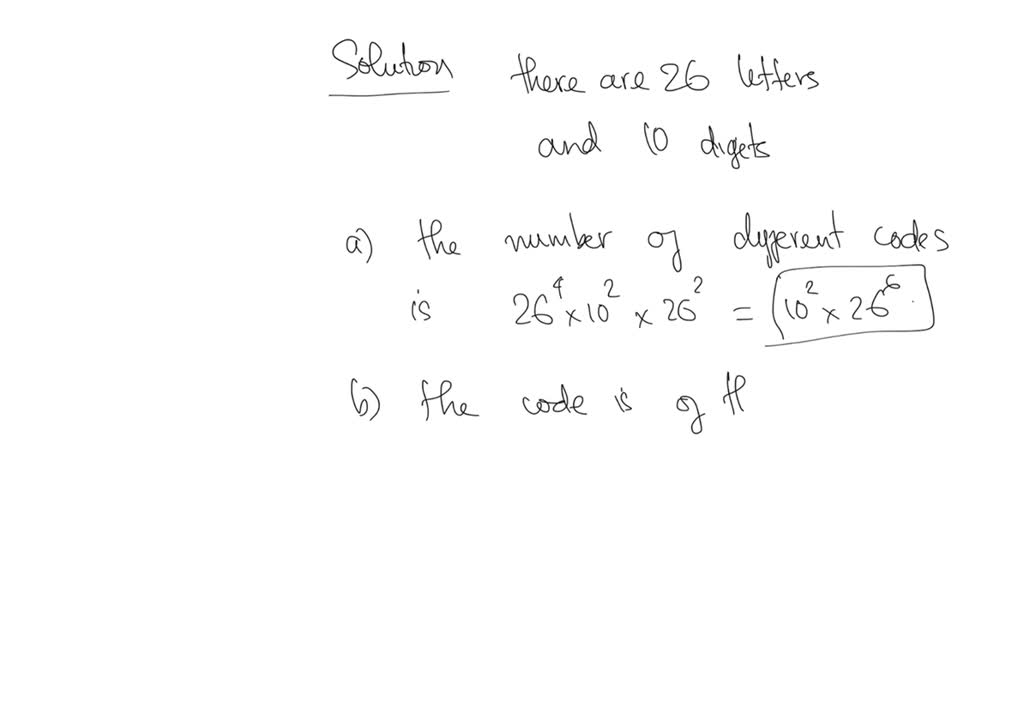 Solution there are 26 letters
and 10 digets
a) the number of different codes
is 26⁴ x 10² x 26² = 10² x 26⁶.
b) the code is of th